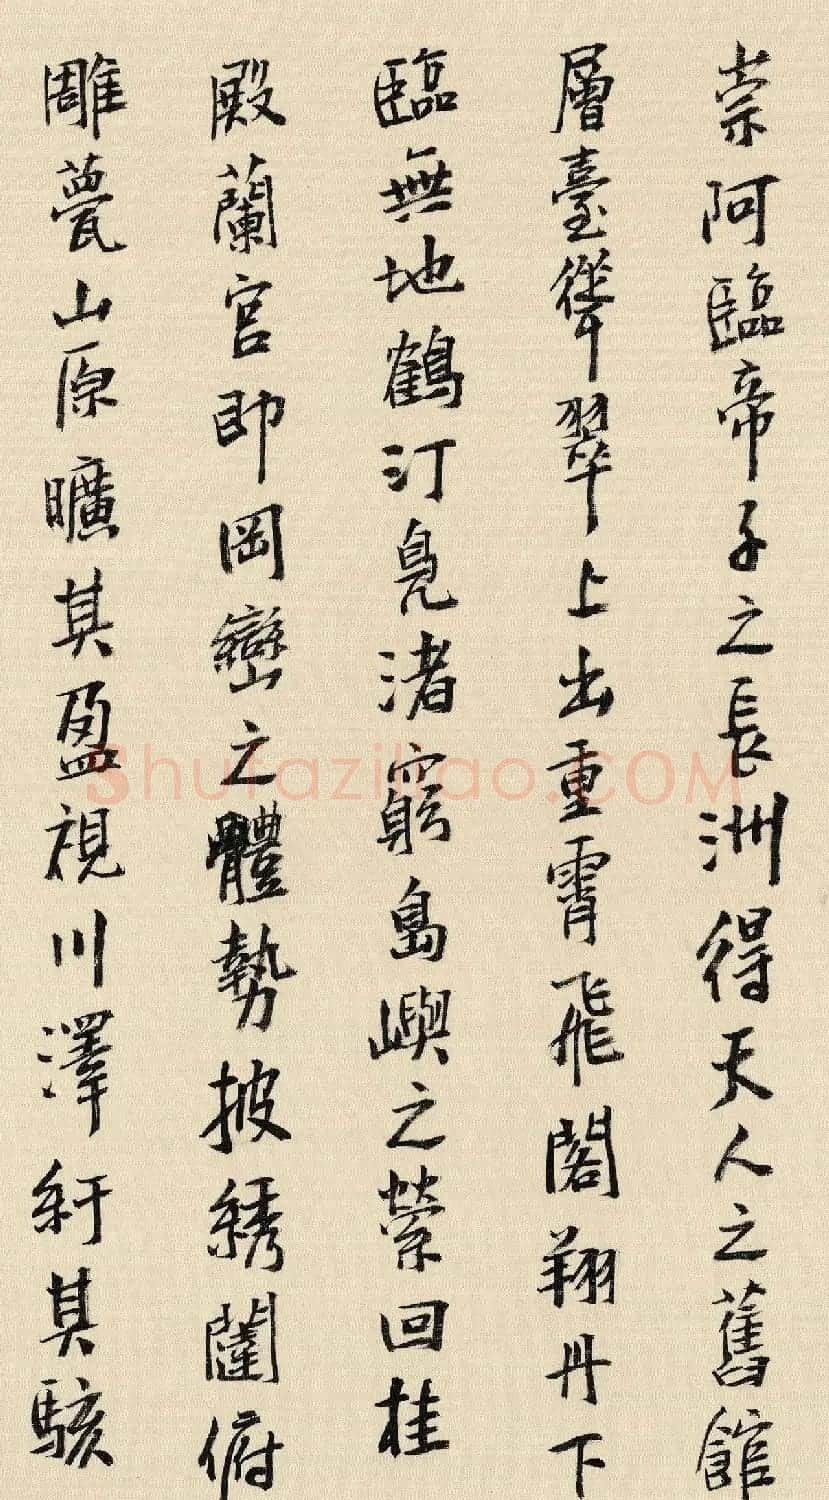 崇阿臨帝子之長洲得天人之舊館
層臺聳翠上出重霄飛閣翔丹下
臨無地鶴汀鳧渚窮島嶼之縈回桂
殿蘭宮即岡巒之體勢披綉闥俯
雕甍山原曠其盈視川澤紆其駭
Shufaziliao.COM